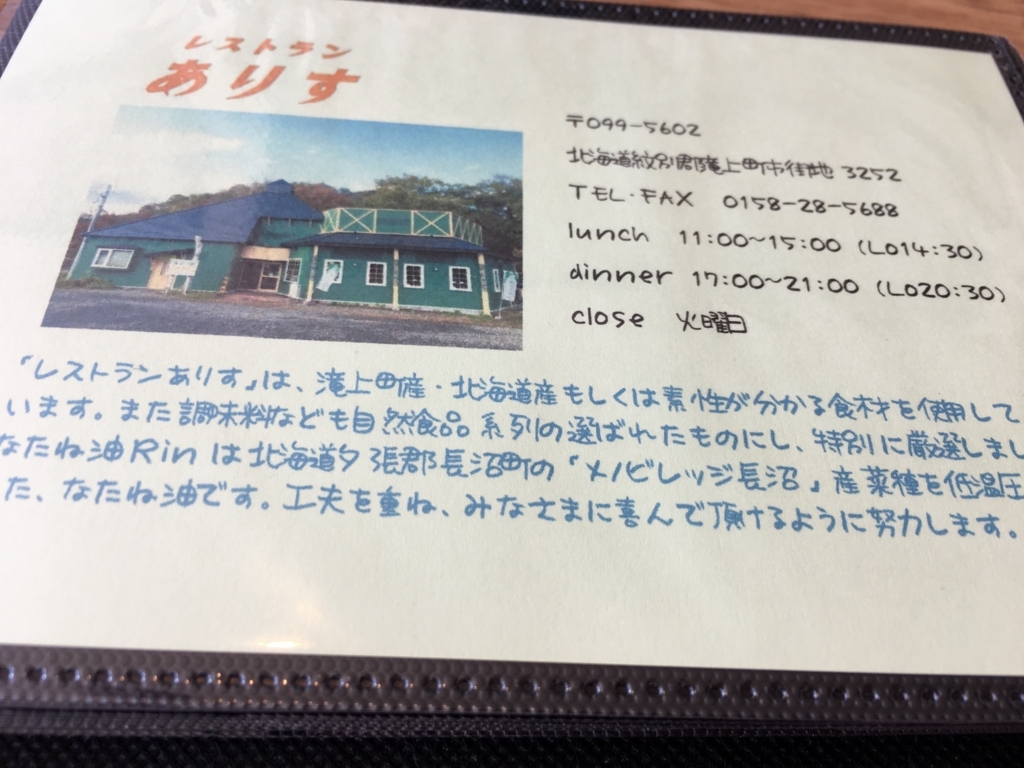 レストラン
ありす
〒099-5602
北海道紋別郡滝上町市街地 3252
TEL・FAX 0158-28-5688
lunch 11:00~15:00 (LO14:30)
dinner 17:00~21:00 (LO20:30)
close 火曜日
「レストランありす」は、滝上町産・北海道産もしくは素性が分かる食材を使用して
います。また調味料なども自然食品系列の選ばれたものにし、特別に厳選しまし
なたね油Rinは北海道夕張郡長沼町の「メノビレッジ長沼」産菜種を低温圧
た、なたね油です。工夫を重ね、みなさまに喜んで頂けるように努力します。